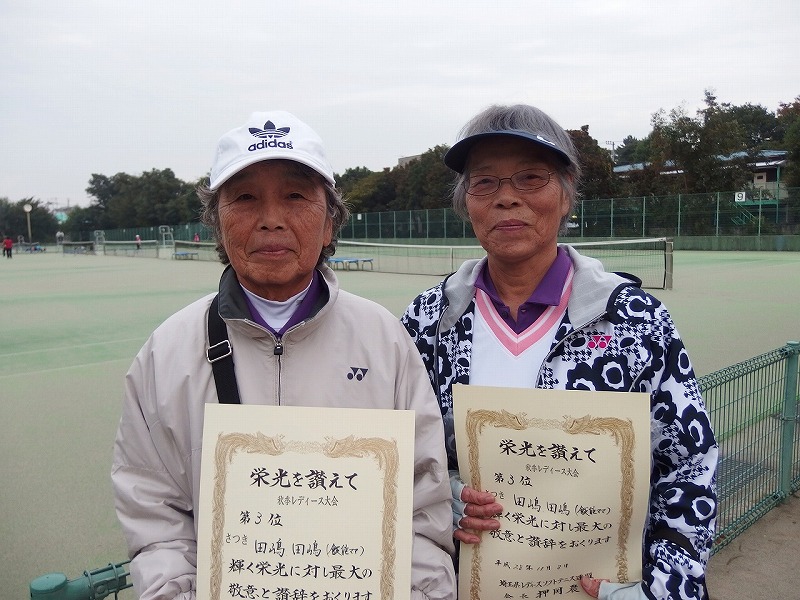 adidas
9
栄光を讃えて
秋季レディース大会
第3位
さつき 田嶋 田嶋 (飯能ママ)
輝く栄光に対し最大の
敬意と讃辞をおくります
栄光を讃えて
秋季レディース大会
第3位
さつき 田嶋 田嶋 (飯能ママ)
輝く栄光に対し最大の
敬意と讃辞をおくります
平成
埼玉県レディースソフトテニス連盟
会長 押田